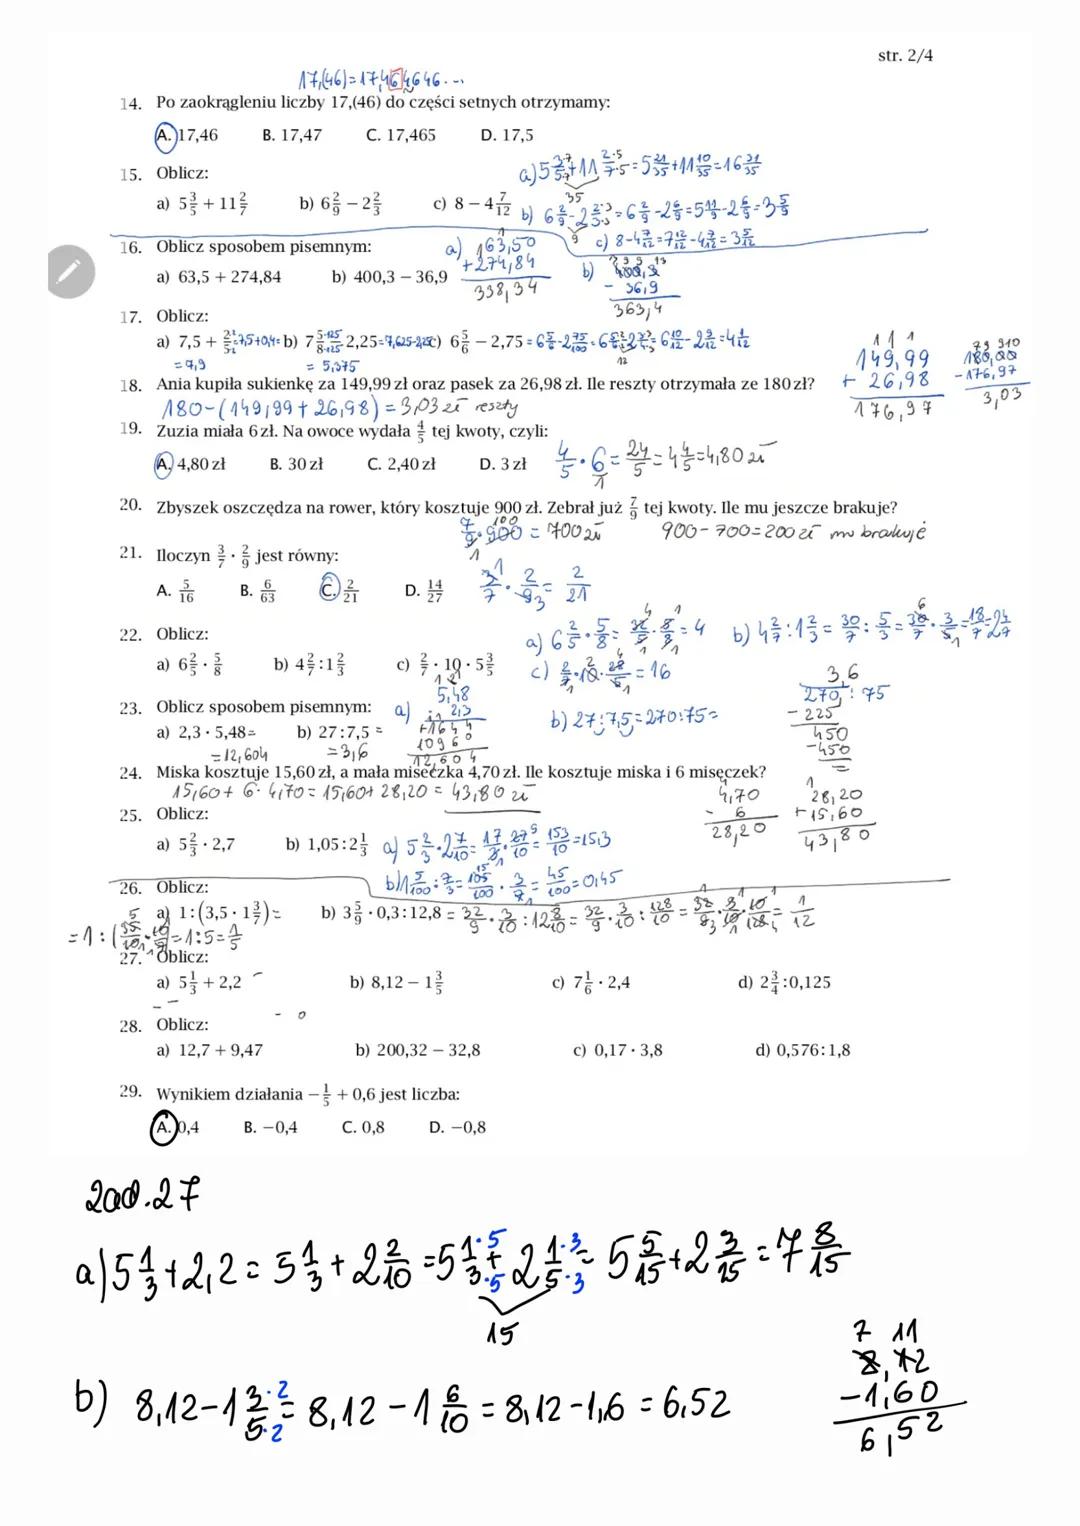 str. 2/4
17,(46)=17,464646...
14. Po zaokrągleniu liczby 17,(46) do części setnych otrzymamy:
A. 17,46 B. 17,47 C. 17,465 D. 17,5
15. Oblicz:
a) 5 3/5 + 11 2/7 b) 6 2/9 − 2 2/3 c) 8 − 4 7/12
a) 5 3·7/5·7 + 11 2·5/7·5 = 5 21/35 + 11 10/35 = 16 31/35
35
b) 6 2/9 - 2 2·3/3·3 = 6 2/9 - 2 6/9 = 5 11/9 - 2 6/9 = 3 5/9
9
c) 8-4 7/12 = 7 12/12 - 4 7/12 = 3 5/12
16. Oblicz sposobem pisemnym:
a) 63,5 + 274,84 b) 400,3 − 36,9
a) 63,50
+274,84
338,34
b) 400,3
- 36,9
363,4
17. Oblicz:
a) 7,5 + 2/5 =7,5+0,4= b) 7 5·125/8·125 − 2,25 =7,625-2,25 c) 6 5/6 − 2,75 = 6 5/6 - 2 75/100 = 6 5·2/6·2 - 2 3·3/4·3 = 6 10/12 - 2 9/12 = 4 1/12
=7,9 = 5,375
12
18. Ania kupiła sukienkę za 149,99 zł oraz pasek za 26,98 zł. Ile reszty otrzymała ze 180 zł?
180-(149,99+26,98)=3,03 zł reszty
149,99
+ 26,98
176,97
180,00
-176,97
3,03
19. Zuzia miała 6 zł. Na owoce wydała 4/5 tej kwoty, czyli:
A. 4,80 zł B. 30 zł C. 2,40 zł D. 3 zł
4/5 · 6/1 = 24/5 = 4 4/5 = 4,80 zł
20. Zbyszek oszczędza na rower, który kosztuje 900 zł. Zebrał już 7/9 tej kwoty. Ile mu jeszcze brakuje?
7/9 · 900 = 700 zł 900-700=200 zł mu brakuje
21. Iloczyn 3/7 · 2/9 jest równy:
A. 5/16 B. 6/63 C. 2/21 D. 14/27
3/7 · 2/9 = 2/21
22. Oblicz:
a) 6 2/5 · 5/8 b) 4 2/7 : 1 2/3 c) 2/7 · 10 · 5 3/5
a) 6 2/5 · 5/8 = 32/5 · 5/8 = 4 b) 4 2/7 : 1 2/3 = 30/7 : 5/3 = 30/7 · 3/5 = 18/7 = 2 4/7
c) 2/7 · 10 · 28/5 = 16
23. Oblicz sposobem pisemnym:
a) 2,3 · 5,48= b) 27 : 7,5 =
=12,604 =3,6
a) 5,48
· 2,3
+1644
10960
12,604
b) 27:7,5=270:75=
3,6
270 : 75
- 225
450
-450
=
24. Miska kosztuje 15,60 zł, a mała miseczka 4,70 zł. Ile kosztuje miska i 6 miseczek?
15,60+ 6· 4,70= 15,60+ 28,20 = 43,80 zł
4,70
· 6
28,20
28,20
+15,60
43,80
25. Oblicz:
a) 5 2/3 · 2,7 b) 1,05 : 2 1/3
a) 5 2/3 · 2 7/10 = 17/3 · 27/10 = 153/10 = 15,3
b) 1 5/100 : 7/3 = 105/100 · 3/7 = 45/100 = 0,45
26. Oblicz:
a) 1 : (3,5 · 1 3/7) = b) 3 5/9 · 0,3 : 12,8 = 32/9 · 3/10 : 12 8/10 = 32/9 · 3/10 : 128/10 = 32/9 · 3/10 · 10/128 = 1/12
=1:(35/10 · 10/7)=1:5=1/5
27. Oblicz:
a) 5 1/3 + 2,2 b) 8,12 − 1 3/5 c) 7 1/6 · 2,4 d) 2 3/4 : 0,125
28. Oblicz:
a) 12,7 + 9,47 b) 200,32 − 32,8 c) 0,17 · 3,8 d) 0,576 : 1,8
29. Wynikiem działania − 1/5 + 0,6 jest liczba:
A. 0,4 B. −0,4 C. 0,8 D. −0,8
zad. 27
a) 5 1/3 + 2,2 = 5 1/3 + 2 2/10 = 5 1·5/3·5 + 2 1·3/5·3 = 5 5/15 + 2 3/15 = 7 8/15
15
b) 8,12-1 3·2/5·2 = 8,12 - 1 6/10 = 8,12-1,6 = 6,52
7 11
8,12
-1,60
6,52